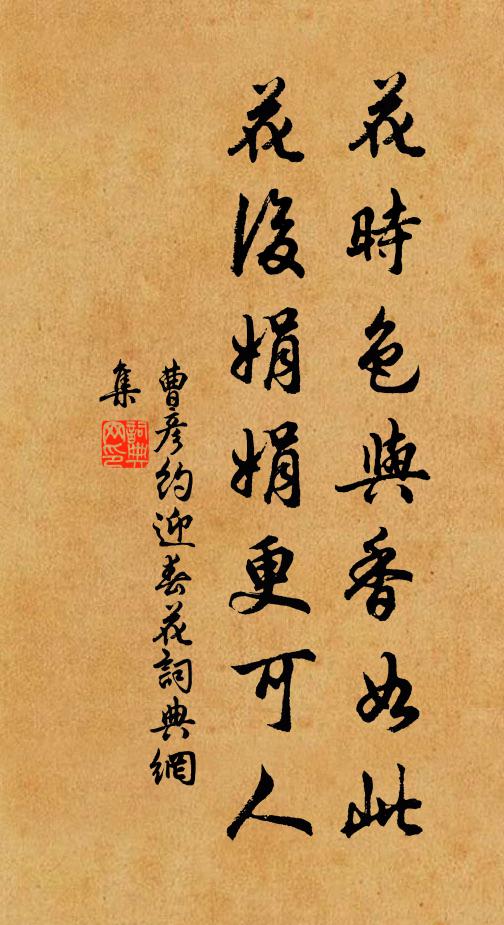 花時色與香如此
花後娟娟更可人
曹彦約迎春花詞典網
集
詞典網印